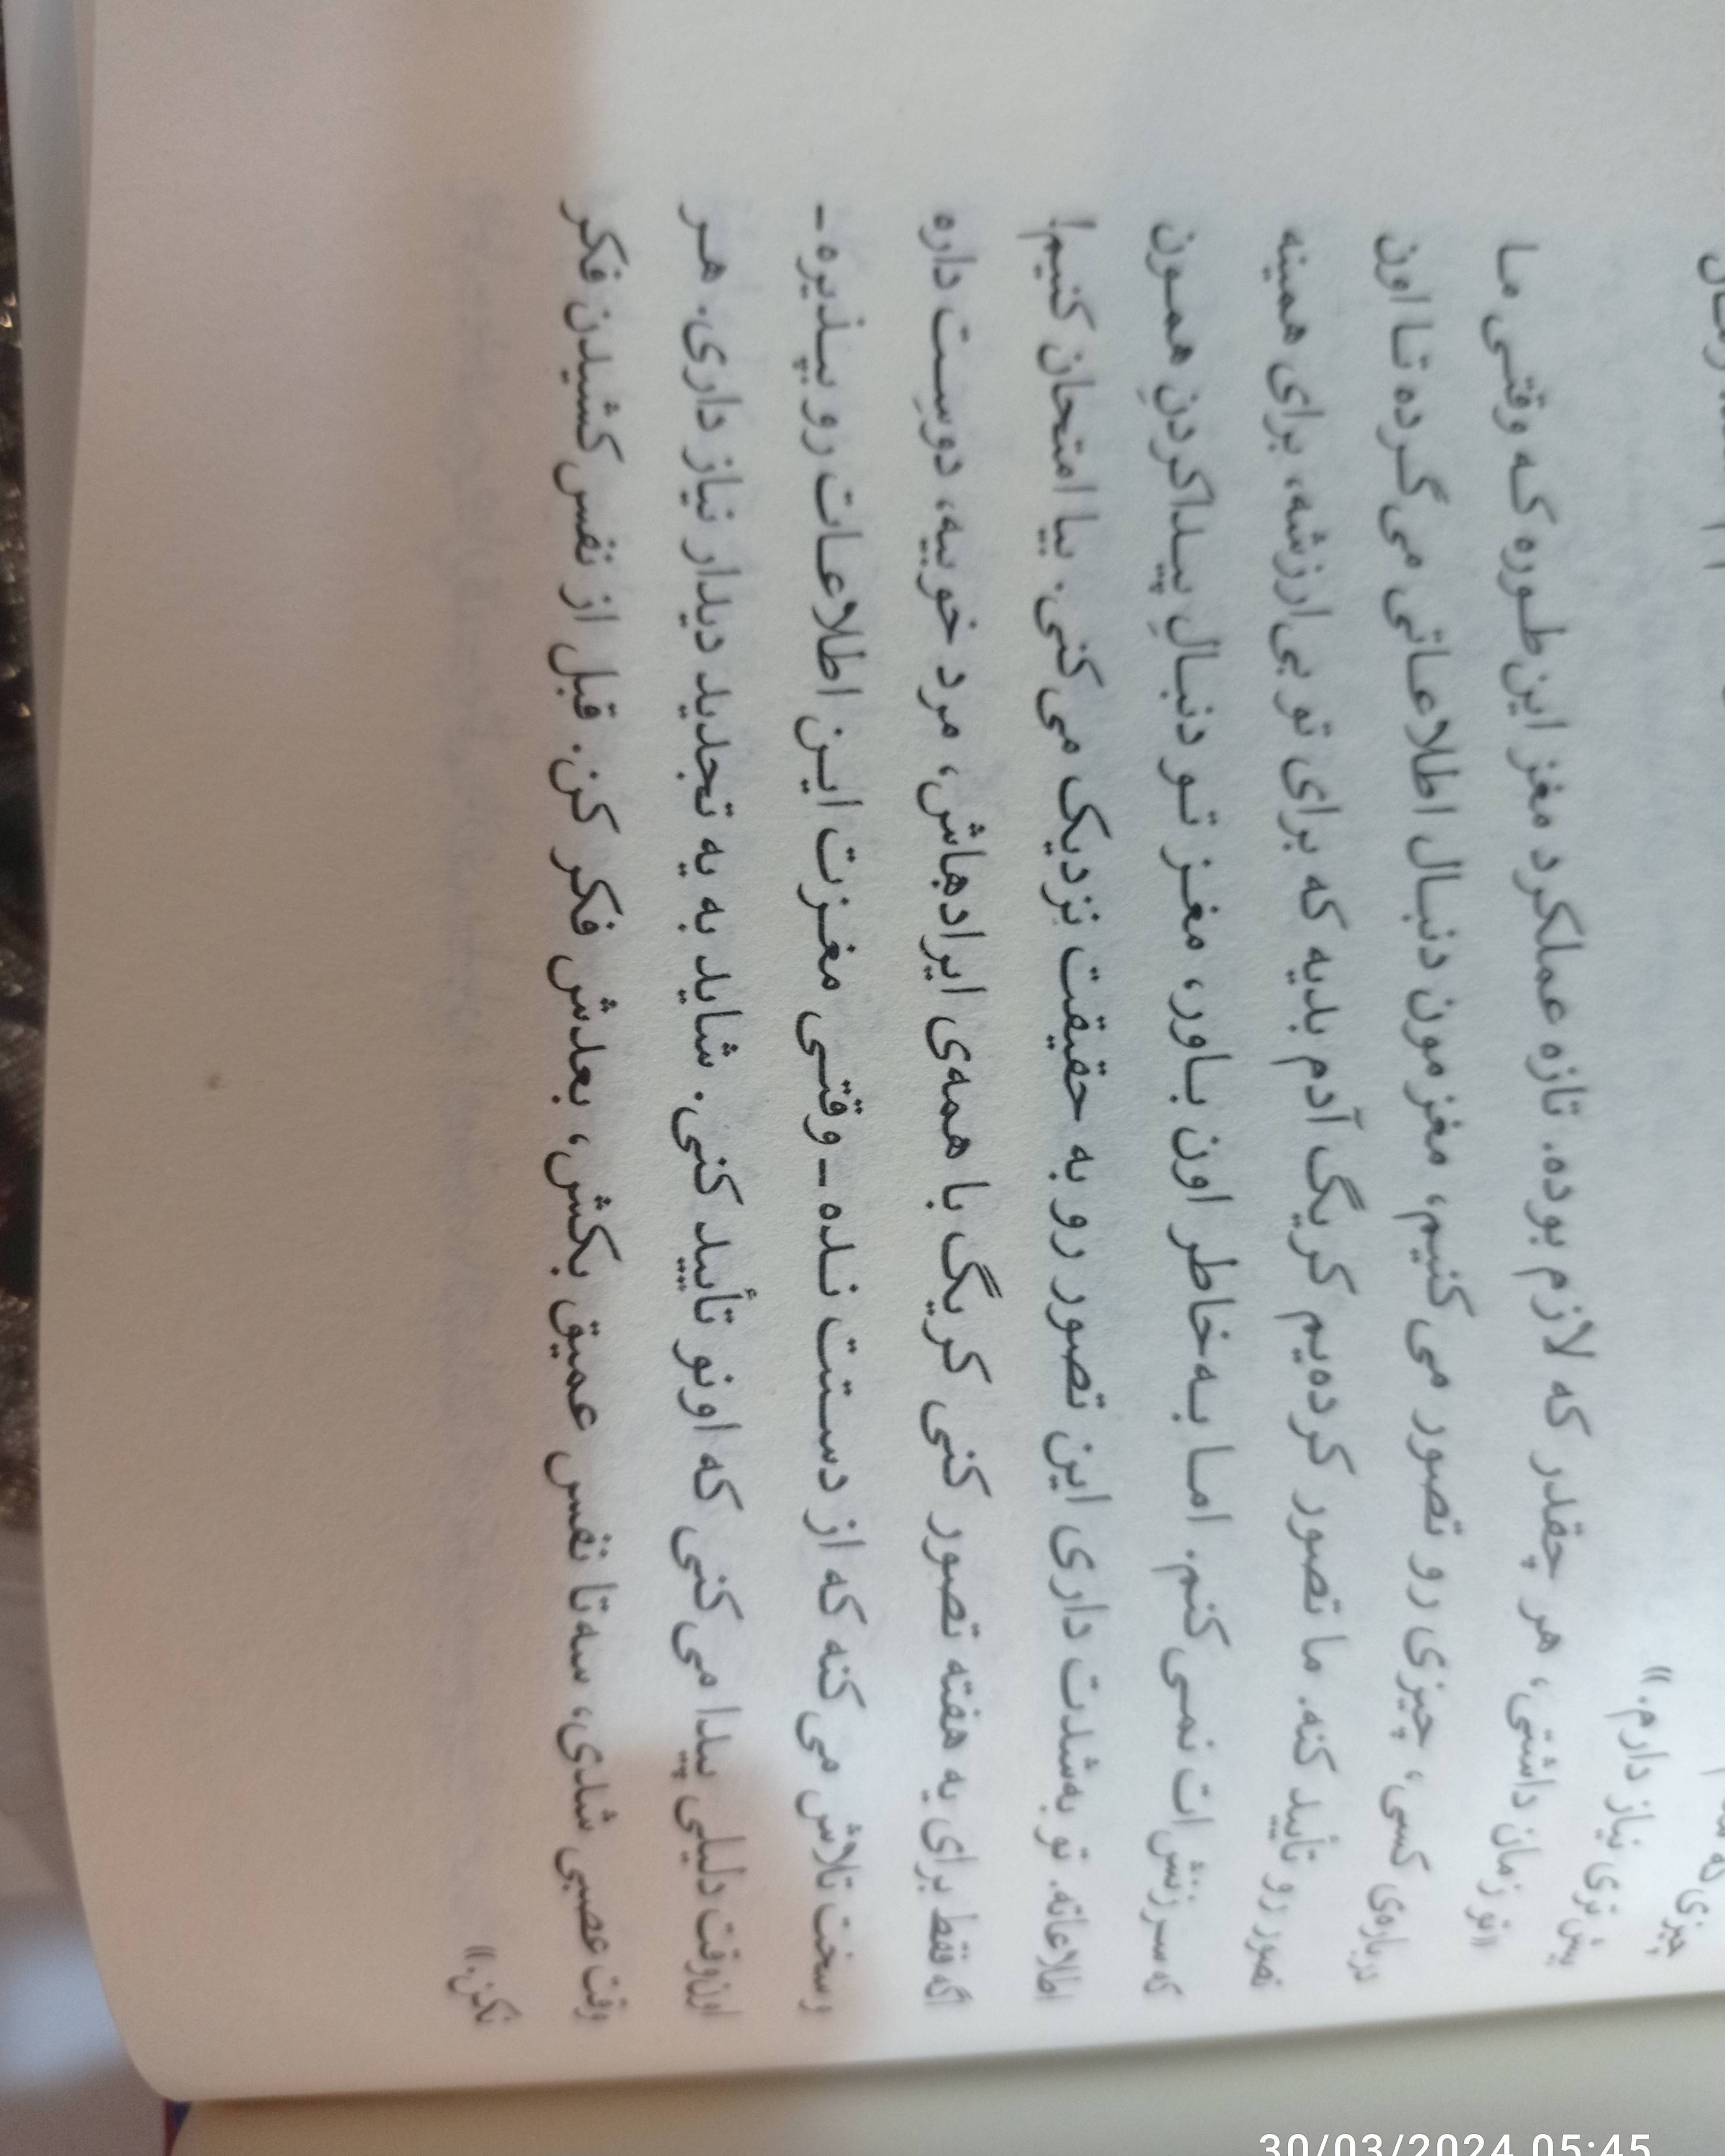 چیزی که
بیش‌تری نیاز دارم.»
«تو زمان داشتی، هر چقدر که لازم بوده. تازه عملکرد مغز این‌طوره که وقتی ما
درباره‌ی کسی، چیزی رو تصور می‌کنیم، مغزمون دنبال اطلاعاتی می‌گرده تا اون
تصور رو تأیید کنه. ما تصور کرده‌یم کریگ آدم بدیه که برای تو بی‌ارزشه، برای همینه
که سرزنش‌ات نمی‌کنم. اما به‌خاطر اون باور، مغز تو دنبالِ پیداکردنِ همون
اطلاعاته. تو به‌شدت داری این تصور رو به حقیقت نزدیک می‌کنی. بیا امتحان کنیم!
اگه فقط برای یه هفته تصور کنی کریگ با همه‌ی ایرادهاش، مرد خوبیه، دوسِت داره
و سخت تلاش می‌کنه که از دستت نده ـ وقتی مغزت این اطلاعات رو بپذیره ـ
اون‌وقت دلیلی پیدا می‌کنی که اونو تأیید کنی. شاید به یه تجدید دیدار نیاز داری. هر
وقت عصبی شدی، سه‌تا نفس عمیق بکش، بعدش فکر کن. قبل از نفس کشیدن فکر
نکن.»
30/03/2024 05:45